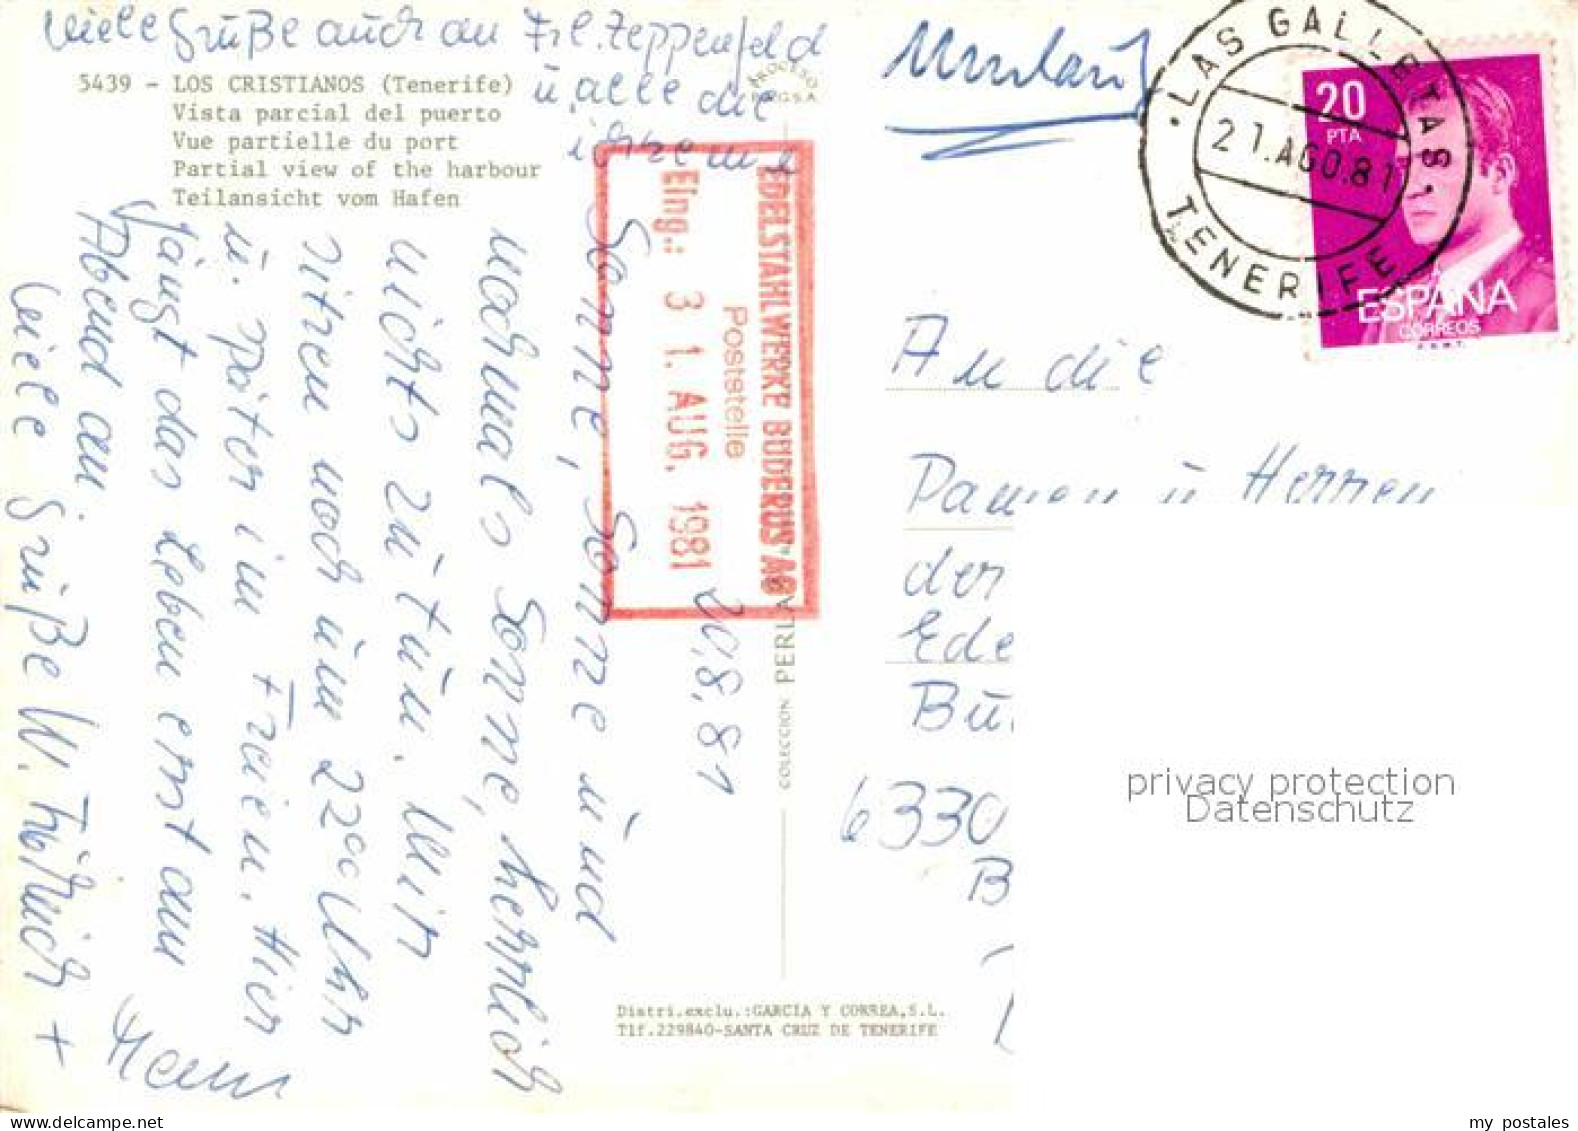 Viele Grüße auch an Frl. Zeppenfeld
u. alle die
ich kenne
5439 - LOS CRISTIANOS (Tenerife)
Vista parcial del puerto
Vue partielle du port
Partial view of the harbour
Teilansicht vom Hafen
20.8.81
Sonne, Sonne und
nochmals Sonne, herrlich
nichts zu tun. Wir
sitzen noch um 22°° Uhr
u. später im Freien. Hier
fängt das Leben erst am
Abend an.
Viele Grüße W. +
EDELSTAHLWERKE BUDERUS AG
Poststelle
Eing.: 3 1. AUG. 1981
COLECCION PERLA
Distri.exclu.:GARCIA Y CORREA,S.L.
Tlf.229840-SANTA CRUZ DE TENERIFE
Umlauf
LAS GALLETAS
21.AGO.81
TENERIFE
20
PTA
ESPAÑA
CORREOS
F.N.M.T.
An die
Damen u Herren
der
Ede
Bu
6330
B
privacy protection
Datenschutz
my postales